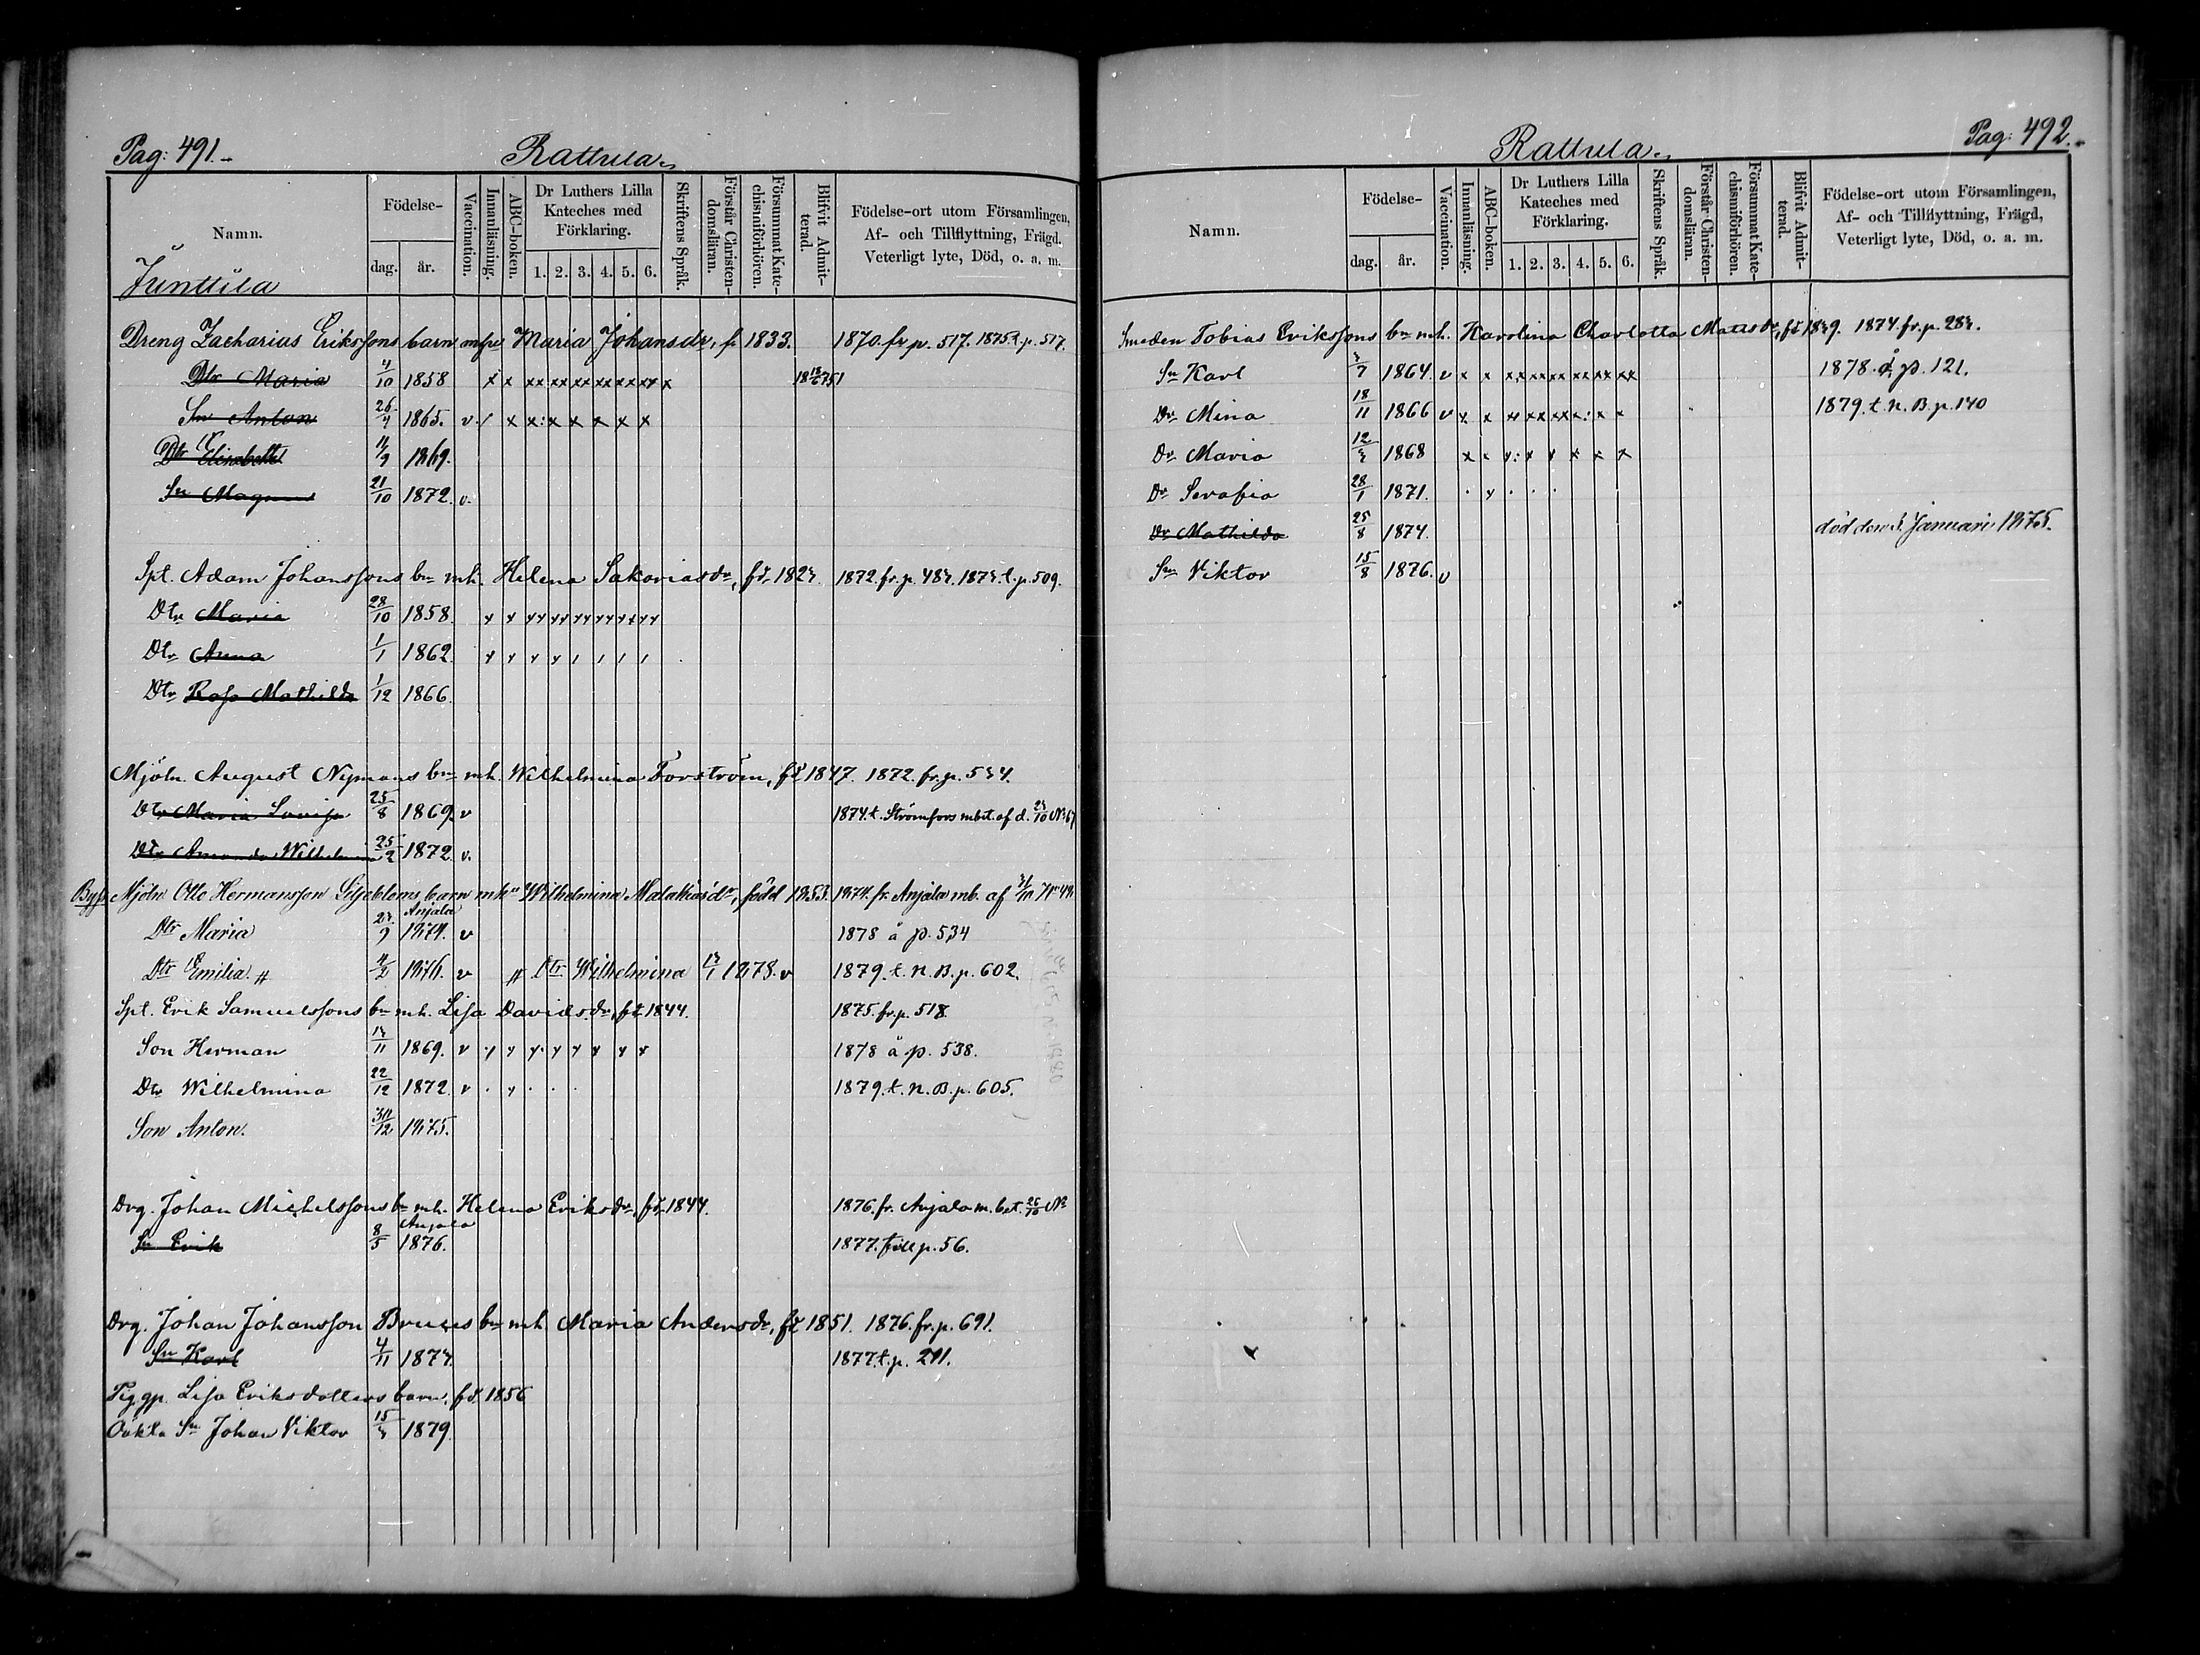 Pag: 491.
Rattula
Namn.
Födelse-
dag.
år.
Vaccination.
Innanläsning.
ABC-boken.
Dr Luthers Lilla Kateches med Förklaring.
1. 2. 3. 4. 5. 6.
Skriftens Språk.
Förstår Christendomsläran.
Försummat Katechismiförhören.
Blifvit Admitterad.
Födelse-ort utom Församlingen, Af- och Tillflyttning, Frägd, Veterligt lyte, Död, o. a. m.
Junttila
Dreng Zacharias Erikssons barn m hu Maria Johansdr, f. 1833. 1870. fr p. 517. 1875 t. p. 517.
Dtr Maria 4/10 1858 x x xx xx xx xx xx xx x
Sn Anton 26/4 1865. v
Dtr Elisabeth 11/9 1869.
Sn Magnus 21/10 1872. v.
Spt. Adam Johanssons bn mh. Helena Sakariasdr, fd 1823 1872. fr. p. 483. 1873. t. p. 509.
Dtr Maria 28/10 1858
Dtr Anna 1/1 1862
Dtr Rosa Mathilda 1/12 1866.
Mjöln. August Nymans bn mh. Wilhelmina Forström, fd 1847. 1872. fr. p. 534.
Dtr Maria Lovisa 25/8 1869. v 1874. t. Strömfors mbet. af d. 23/10 No 67
Dtr Amanda Wilhelmina 25/2 1872 v.
Mjöln Otto Hermansson Liljebloms barn mh Wilhelmina Malakiasdr, född 1853. 1874. fr. Anjala mb. af 31/10 No 43
Anjala
Dtr Maria 23/9 1874. v 1878 å p. 534
Dtr Emilia # 4/2 1876. v # Dtr Wilhelmina 13/1 1878. v 1879. t. N. B. p. 602.
Spt. Erik Samuelssons bn mh. Lisa Davidsdr, fd 1844. 1875. fr. p. 518
Son Herman 13/11 1869. v 1878 å p. 538.
Dtr Wilhelmina 22/12 1872. v 1879. t. N. B. p. 605.
Son Anton. 30/12 1875.
Drg. Johan Michelssons bn mh. Helena Eriksdr, fd 1844. 1876. fr. Anjala m. bet. 25/10 No
Anjala
Sn Erik 8/5 1876. 1877. till p. 56.
Drg. Johan Johansson Bruuns bn mh. Maria Andersdr, fd 1851. 1876. fr. p. 691.
Sn Karl 4/11 1873. 1877. t. p. 291.
Pig. Lisa Eriksdotters barn, fd. 1856
Oäkta Sn Johan Viktor 15/3 1879.
Pag: 492.
Rattula
Namn.
Födelse-
dag.
år.
Vaccination.
Innanläsning.
ABC-boken.
Dr Luthers Lilla Kateches med Förklaring.
1. 2. 3. 4. 5. 6.
Skriftens Språk.
Förstår Christendomsläran.
Försummat Katechismiförhören.
Blifvit Admitterad.
Födelse-ort utom Församlingen, Af- och Tillflyttning, Frägd, Veterligt lyte, Död, o. a. m.
Smeden Tobias Erikssons bn mh. Karolina Charlotta Mattsdr, fd 1839. 1874. fr. p. 283.
Sn Karl 3/7 1864. v x x xx xx xx xx xx xx 1878. å p. 121.
Dr Mina 18/11 1866 v 1879. t. N. B. p. 140
Dr Maria 12/3 1868
Dr Serafia 28/1 1871.
Dr Mathilda 25/8 1874. död den 3 Januari 1875.
Sn Viktor 15/8 1876. v